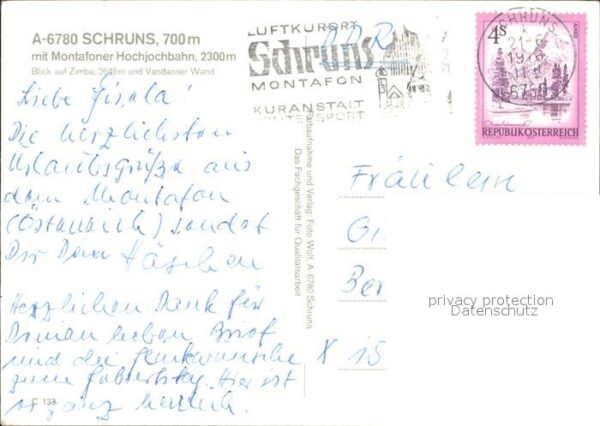 A-6780 SCHRUNS, 700 m
mit Montafoner Hochjochbahn, 2300 m
Blick auf Zimba, 2645 m und Vandanser Wand
LUFTKURORT
Schruns
MONTAFON
KURANSTALT
WINTERSPORT
DDR
SCHRUNS
21-6
1976
6780
4S
REPUBLIK ÖSTERREICH
Liebe Gisela!
Die herzlichsten
Urlaubsgrüße aus
dem Montafon
(Österreich) sendet
Dir Dein Häschen
Herzlichen Dank für
Deinen lieben Brief
und die Glückwünsche
zum Geburtstag. Hier ist
es ganz herrlich.
C 138
Farbaufnahme und Verlag: Foto Wolf, A-6780 Schruns
Das Fachgeschäft für Qualitätsarbeit
Fräulein
Gi
Ber
X 15
privacy protection
Datenschutz